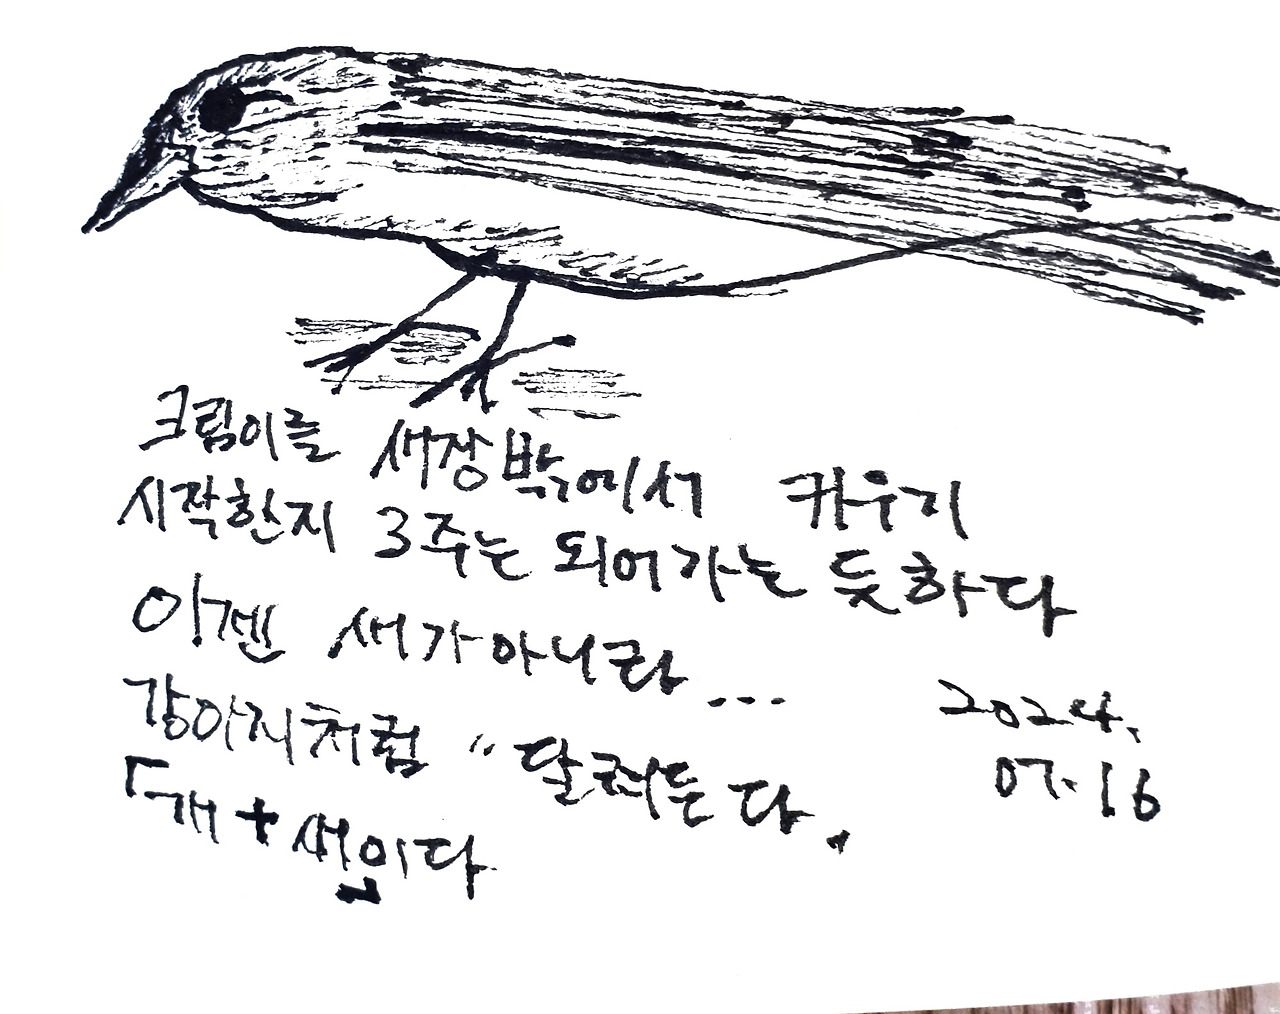 크림이를 새장밖에서 키우기
시작한지 3주는 되어가는 듯하다
이젠 새가아니라...
강아지처럼 "달려든다.
「개+새」이다
2024.
07.16